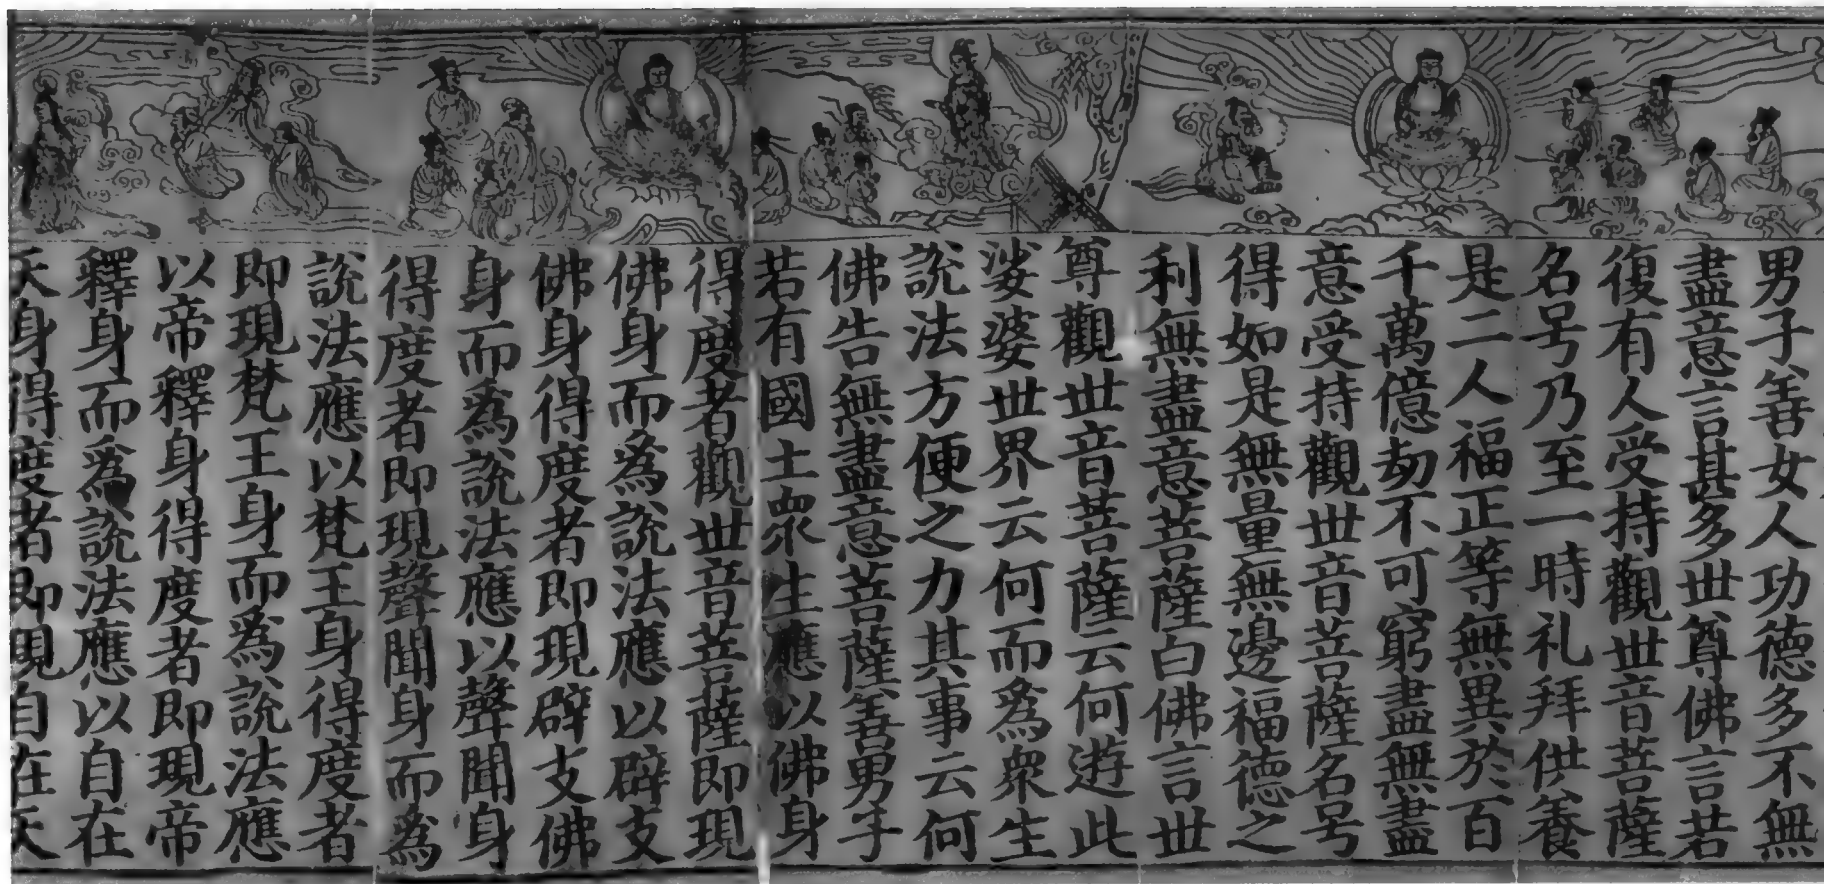 男子善女人功德多不無
盡意言甚多世尊佛言若
復有人受持觀世音菩薩
名号乃至一時礼拜供養
是二人福正等無異於百
千萬億劫不可窮盡無盡
意受持觀世音菩薩名号
得如是無量無邊福德之
利無盡意菩薩白佛言世
尊觀世音菩薩云何遊此
娑婆世界云何而為衆生
説法方便之力其事云何
佛告無盡意菩薩善男子
若有國土衆生應以佛身
得度者觀世音菩薩即現
佛身而為説法應以辟支
佛身得度者即現辟支佛
身而為説法應以聲聞身
得度者即現聲聞身而為
説法應以梵王身得度者
即現梵王身而為説法應
以帝釋身得度者即現帝
釋身而為説法應以自在
天身得度者即現自在天